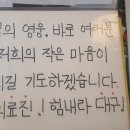 의 영웅. 바로 여러분
저희의 작은 마음이
되길 기도하겠습니다.
의료진, ! 힘내라 대구!